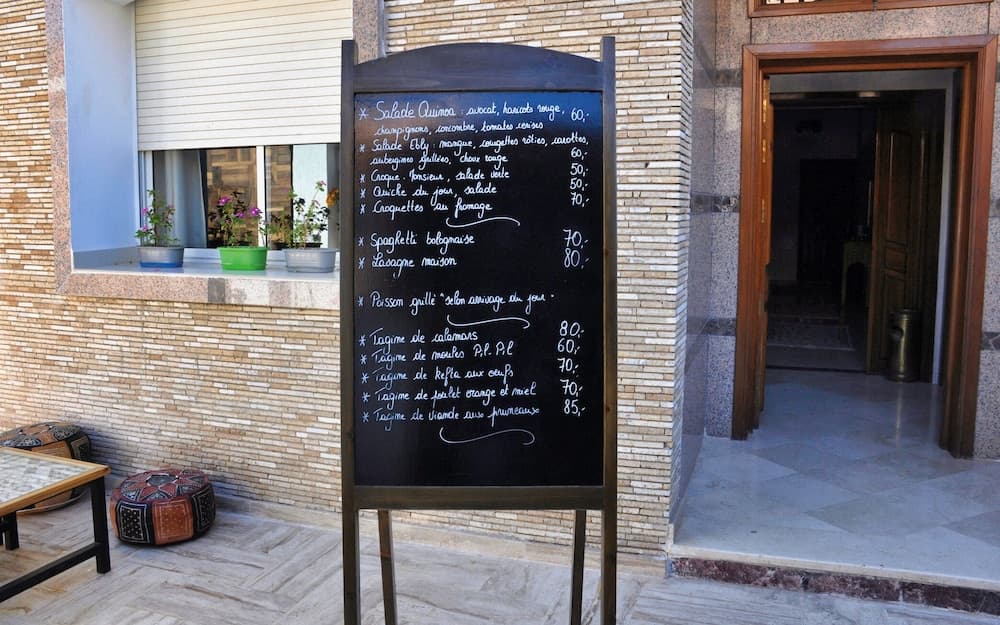 * Salade Quinoa : avocat, haricots rouge, 60,-
champignons, concombre, tomates cerises
* Salade Ebly : mangue, courgettes rôties, carottes,
aubergines grillées, choux rouge 60,-
* Croque-Monsieur, salade verte 50,-
* Quiche du jour, salade 50,-
* Croquettes au fromage 70,-
* Spaghetti bolognaise 70,-
* Lasagne maison 80,-
* Poisson grillé "selon arrivage du jour"
* Tagine de calamars 80,-
* Tagine de moules Pil-Pil 60,-
* Tagine de kefta aux œufs 70,-
* Tagine de poulet orange et miel 70,-
* Tagine de viande aux pruneaux 85,-